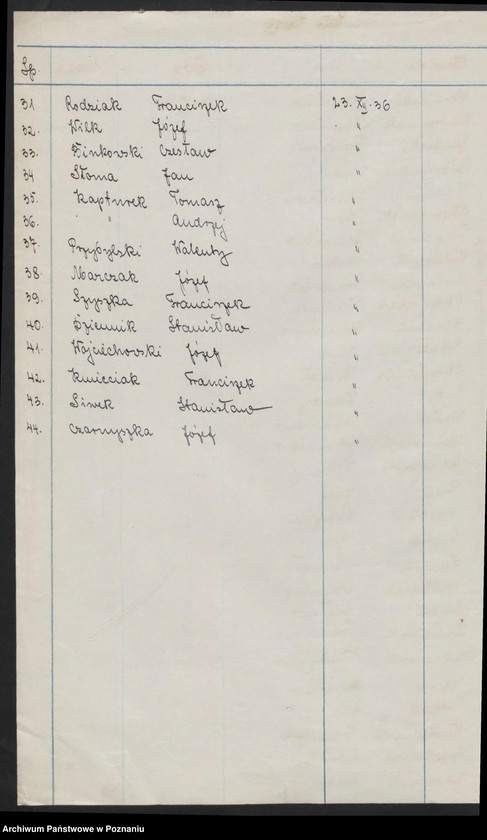 Lp.
31 Rodziak Franciszek 23. XII. 36
32. Wilk Józef "
33. Binkovski Czesław "
34 Słoma Jan "
35. Kapturek Tomasz "
36. " Andrzej "
37. Przybylski Walenty "
38. Marczak Józef "
39. Szyszka Franciszek "
40. Dziennik Stanisław "
41. Wojciechovski Józef "
42. Kmieciak Franciszek "
43. Siwek Stanisław "
44. Czarnyszka Józef "
Archiwum Państwowe w Poznaniu